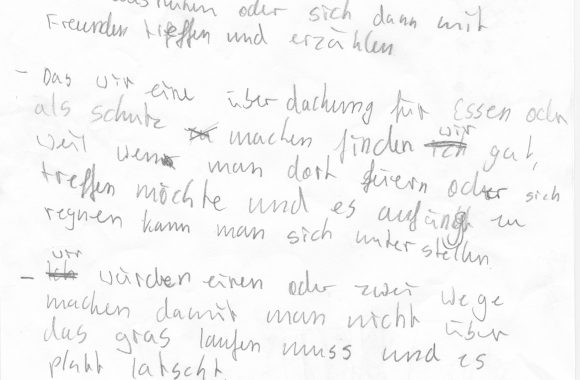 ausruhen oder sich dann mit
Freunden treffen und erzählen
- Das wir eine über dachung für Essen oder
als schutz machen finden wir gut,
weil wenn man dort feiern oder sich
treffen möchte und es aufängt zu
regnen kann man sich unterstellen
- wir würden einen oder zwei wege
machen damit man nicht über
das gras laufen muss und es
platt latscht.